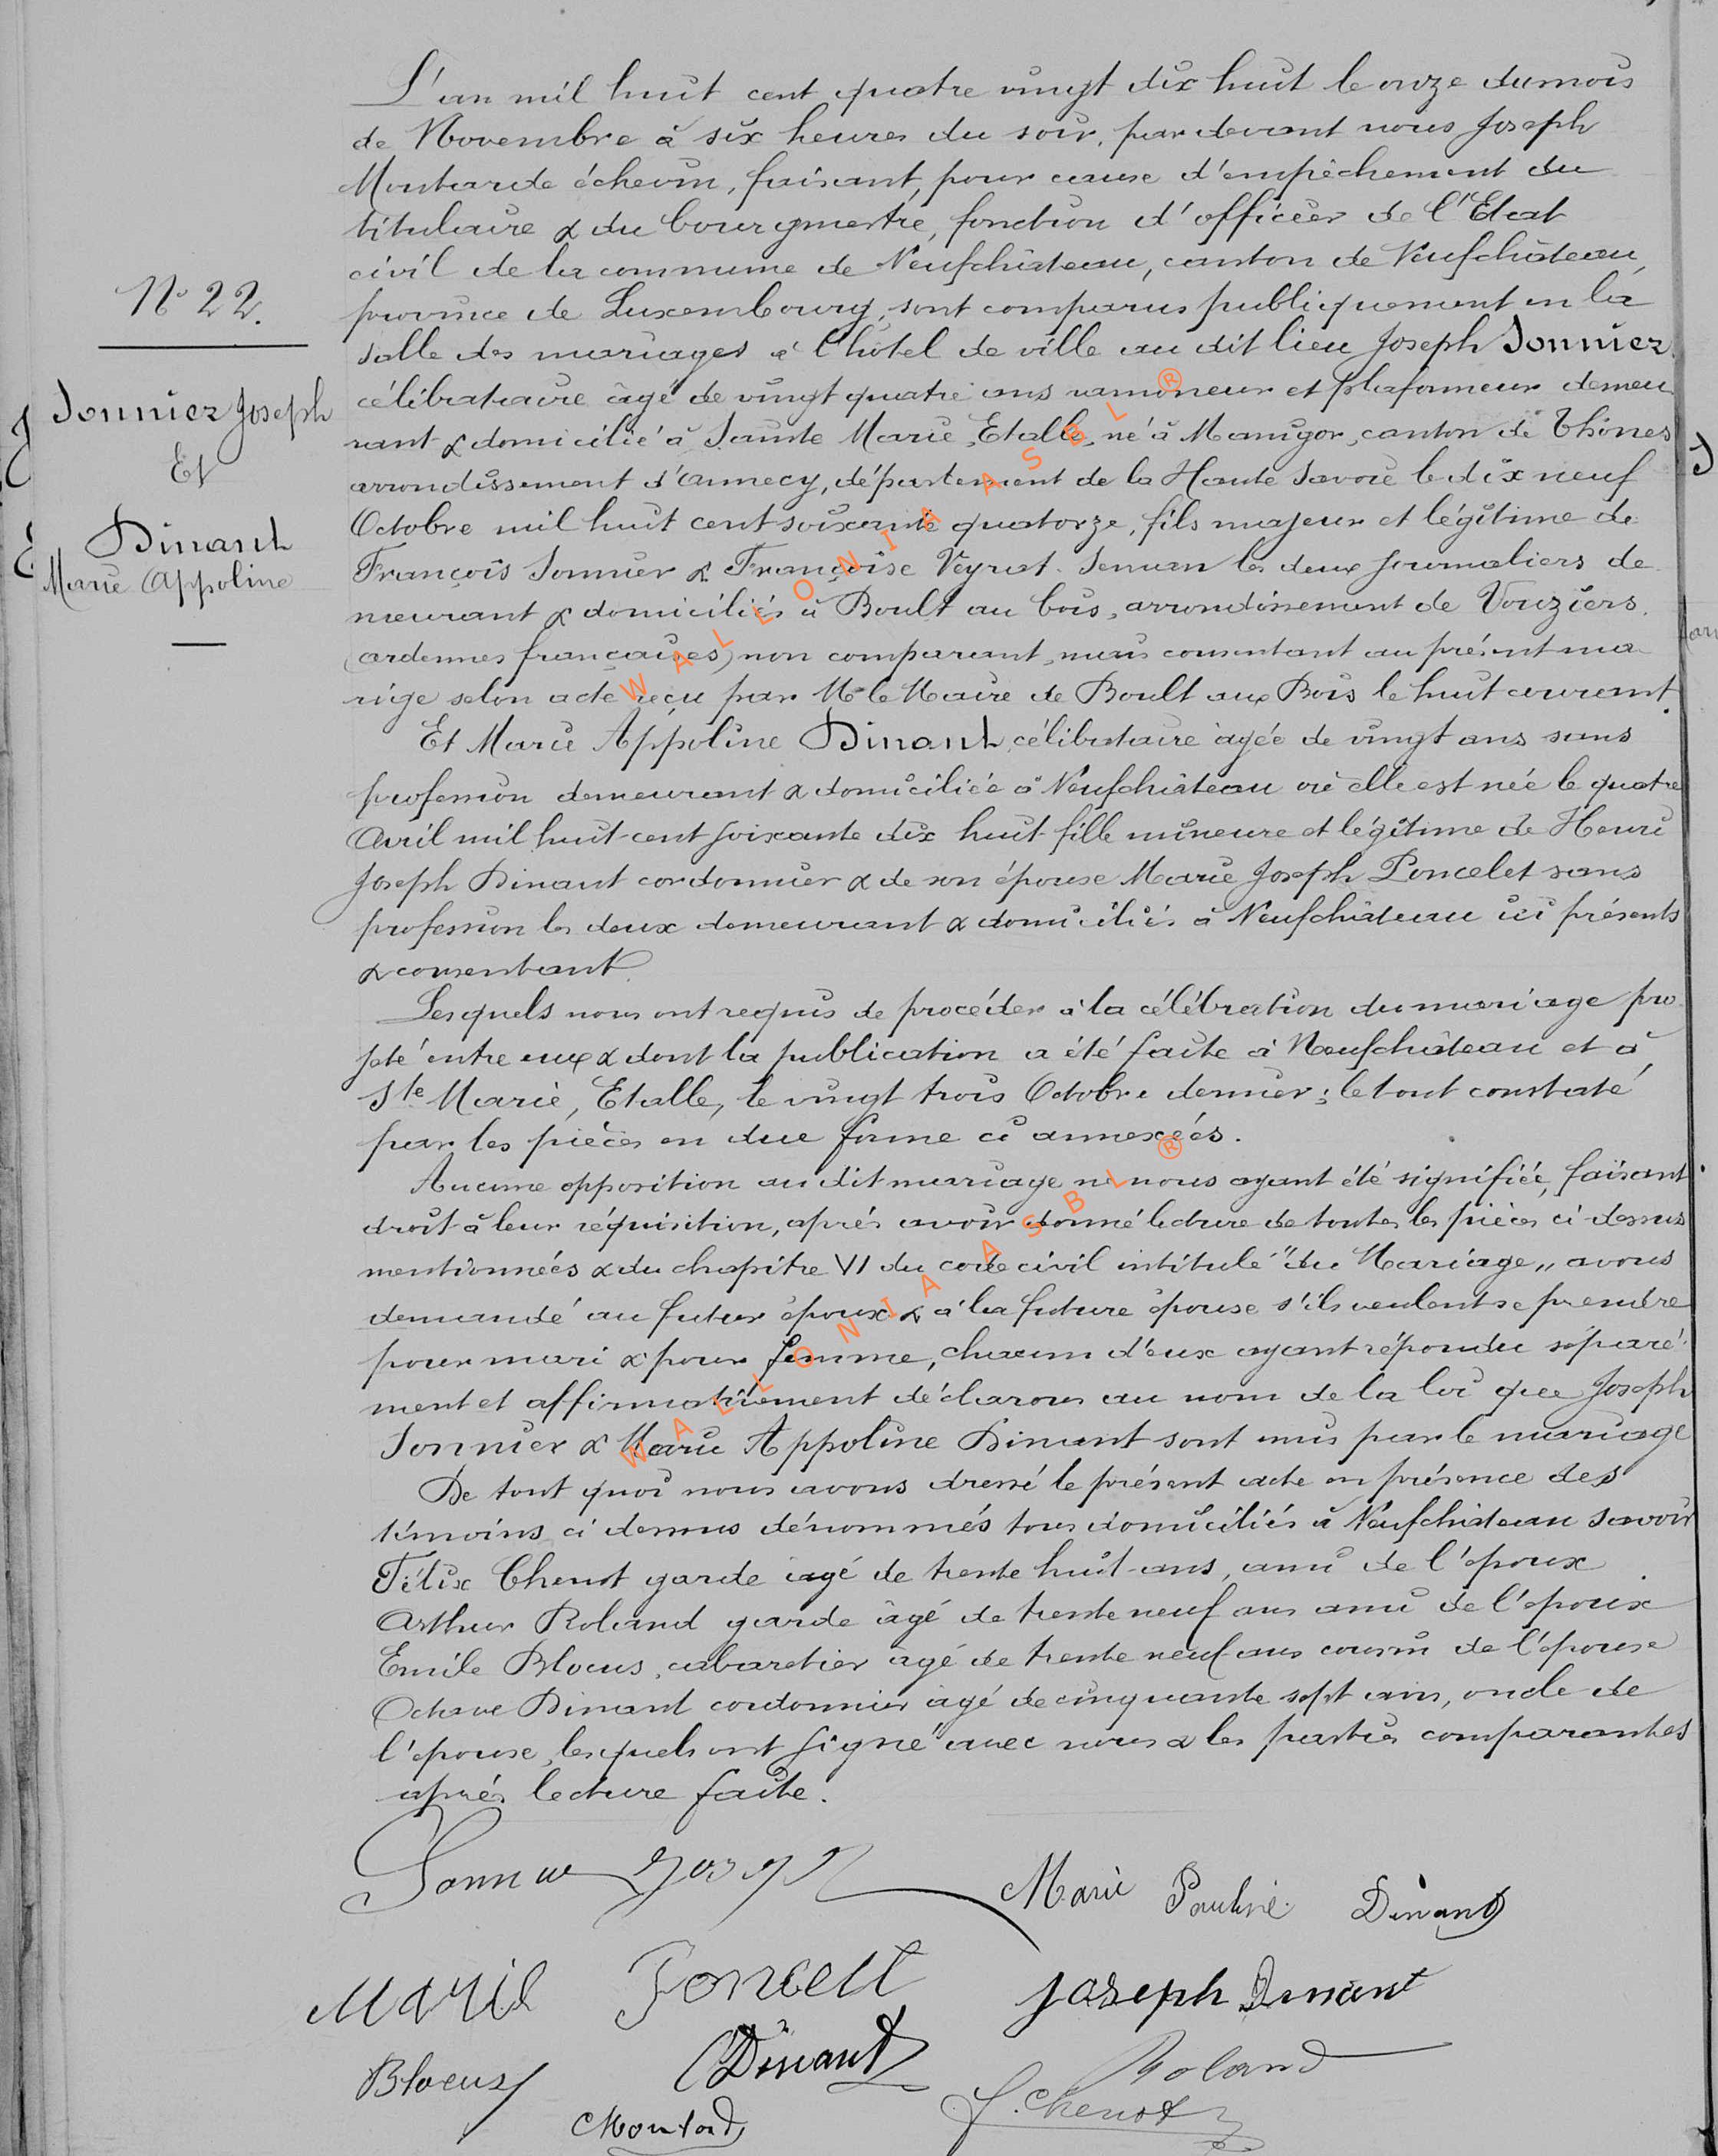 L'an mil huit cent quatre vingt dix huit le onze du mois
de Novembre à six heures du soir, par devant nous Joseph
échevin, faisant, pour cause d'empêchement du
titulaire & du bourgmestre, fonction d'officier de l'Etat
civil de la commune de Neufchâteau, canton de Neufchâteau,
province de Luxembourg, sont comparus publiquement en la
salle des mariages à l'hôtel de ville au dit lieu Joseph Sonnier
célibataire âgé de vingt quatre ans ramoneur et plafonneur demeu
rant & domicilié à Sainte Marie, Etalle, né à Manigor, canton de Thônes
arrondissement d'Annecy, département de la Haute Savoie le dix neuf
Octobre mil huit cent soixante quatorze, fils majeur et légitime de
François Sonnier & Françoise Veyrat. les deux journaliers de
meurant & domiciliés à Boult au bois, arrondissement de Vouziers.
(ardennes françaises) non comparant, mais consentant au présent ma
riage selon acte reçu par Mr le Maire de Boult aux Bois le huit courant.
Et Marie Appoline Dinant, célibataire âgée de vingt ans sans
profession demeurant & domiciliée à Neufchâteau où elle est née le quatre
Avril mil huit cent soixante dix huit fille mineure et légitime de Henri
Joseph Dinant cordonnier & de son épouse Marie Joseph Poncelet sans
profession les deux demeurant & domiciliés à Neufchâteau ici présents
& consentant.
Lesquels nous ont requis de procéder à la célébration du mariage pro
jeté entre eux & dont la publication a été faite à Neufchâteau et à
Ste Marie, Etalle, le vingt trois Octobre dernier; le tout constaté
par les pièces en due forme ci annexées.
Aucune opposition au dit mariage ne nous ayant été signifiée, faisant
droit à leur réquisition, après avoir donné lecture de toutes les pièces ci dessus
mentionnées & du chapitre VI du code civil intitulé "du Mariage" avons
demandé au futur époux & à la future épouse s'ils veulent se prendre
pour mari & pour femme, chacun d'eux ayant répondu séparé
ment et affirmativement déclarons au nom de la loi que Joseph
Sonnier & Marie Appoline Dinant sont unis par le mariage
De tout quoi nous avons dressé le présent acte en présence des
témoins ci dessus dénommés tous domiciliés à Neufchâteau savoir
Félix Chenot garde âgé de trente huit ans, ami de l'époux
Arthur Roland garde âgé de trente neuf ans ami de l'époux
Emile Blocus, cabaretier âgé de trente neuf ans cousin de l'épouse
Octave Dinant cordonnier âgé de cinquante sept ans, oncle de
l'épouse, lesquels ont signé avec nous & les parties comparantes
après lecture faite.
No 22.
Sonnier Joseph
Et
Dinant
Marie Appoline
Marie Pauline Dinant
Marie
Joseph Dinant
Dinant
Roland
Blocus
J. Chenot
WALLONIA ASBL ®
WALLONIA ASBL ®